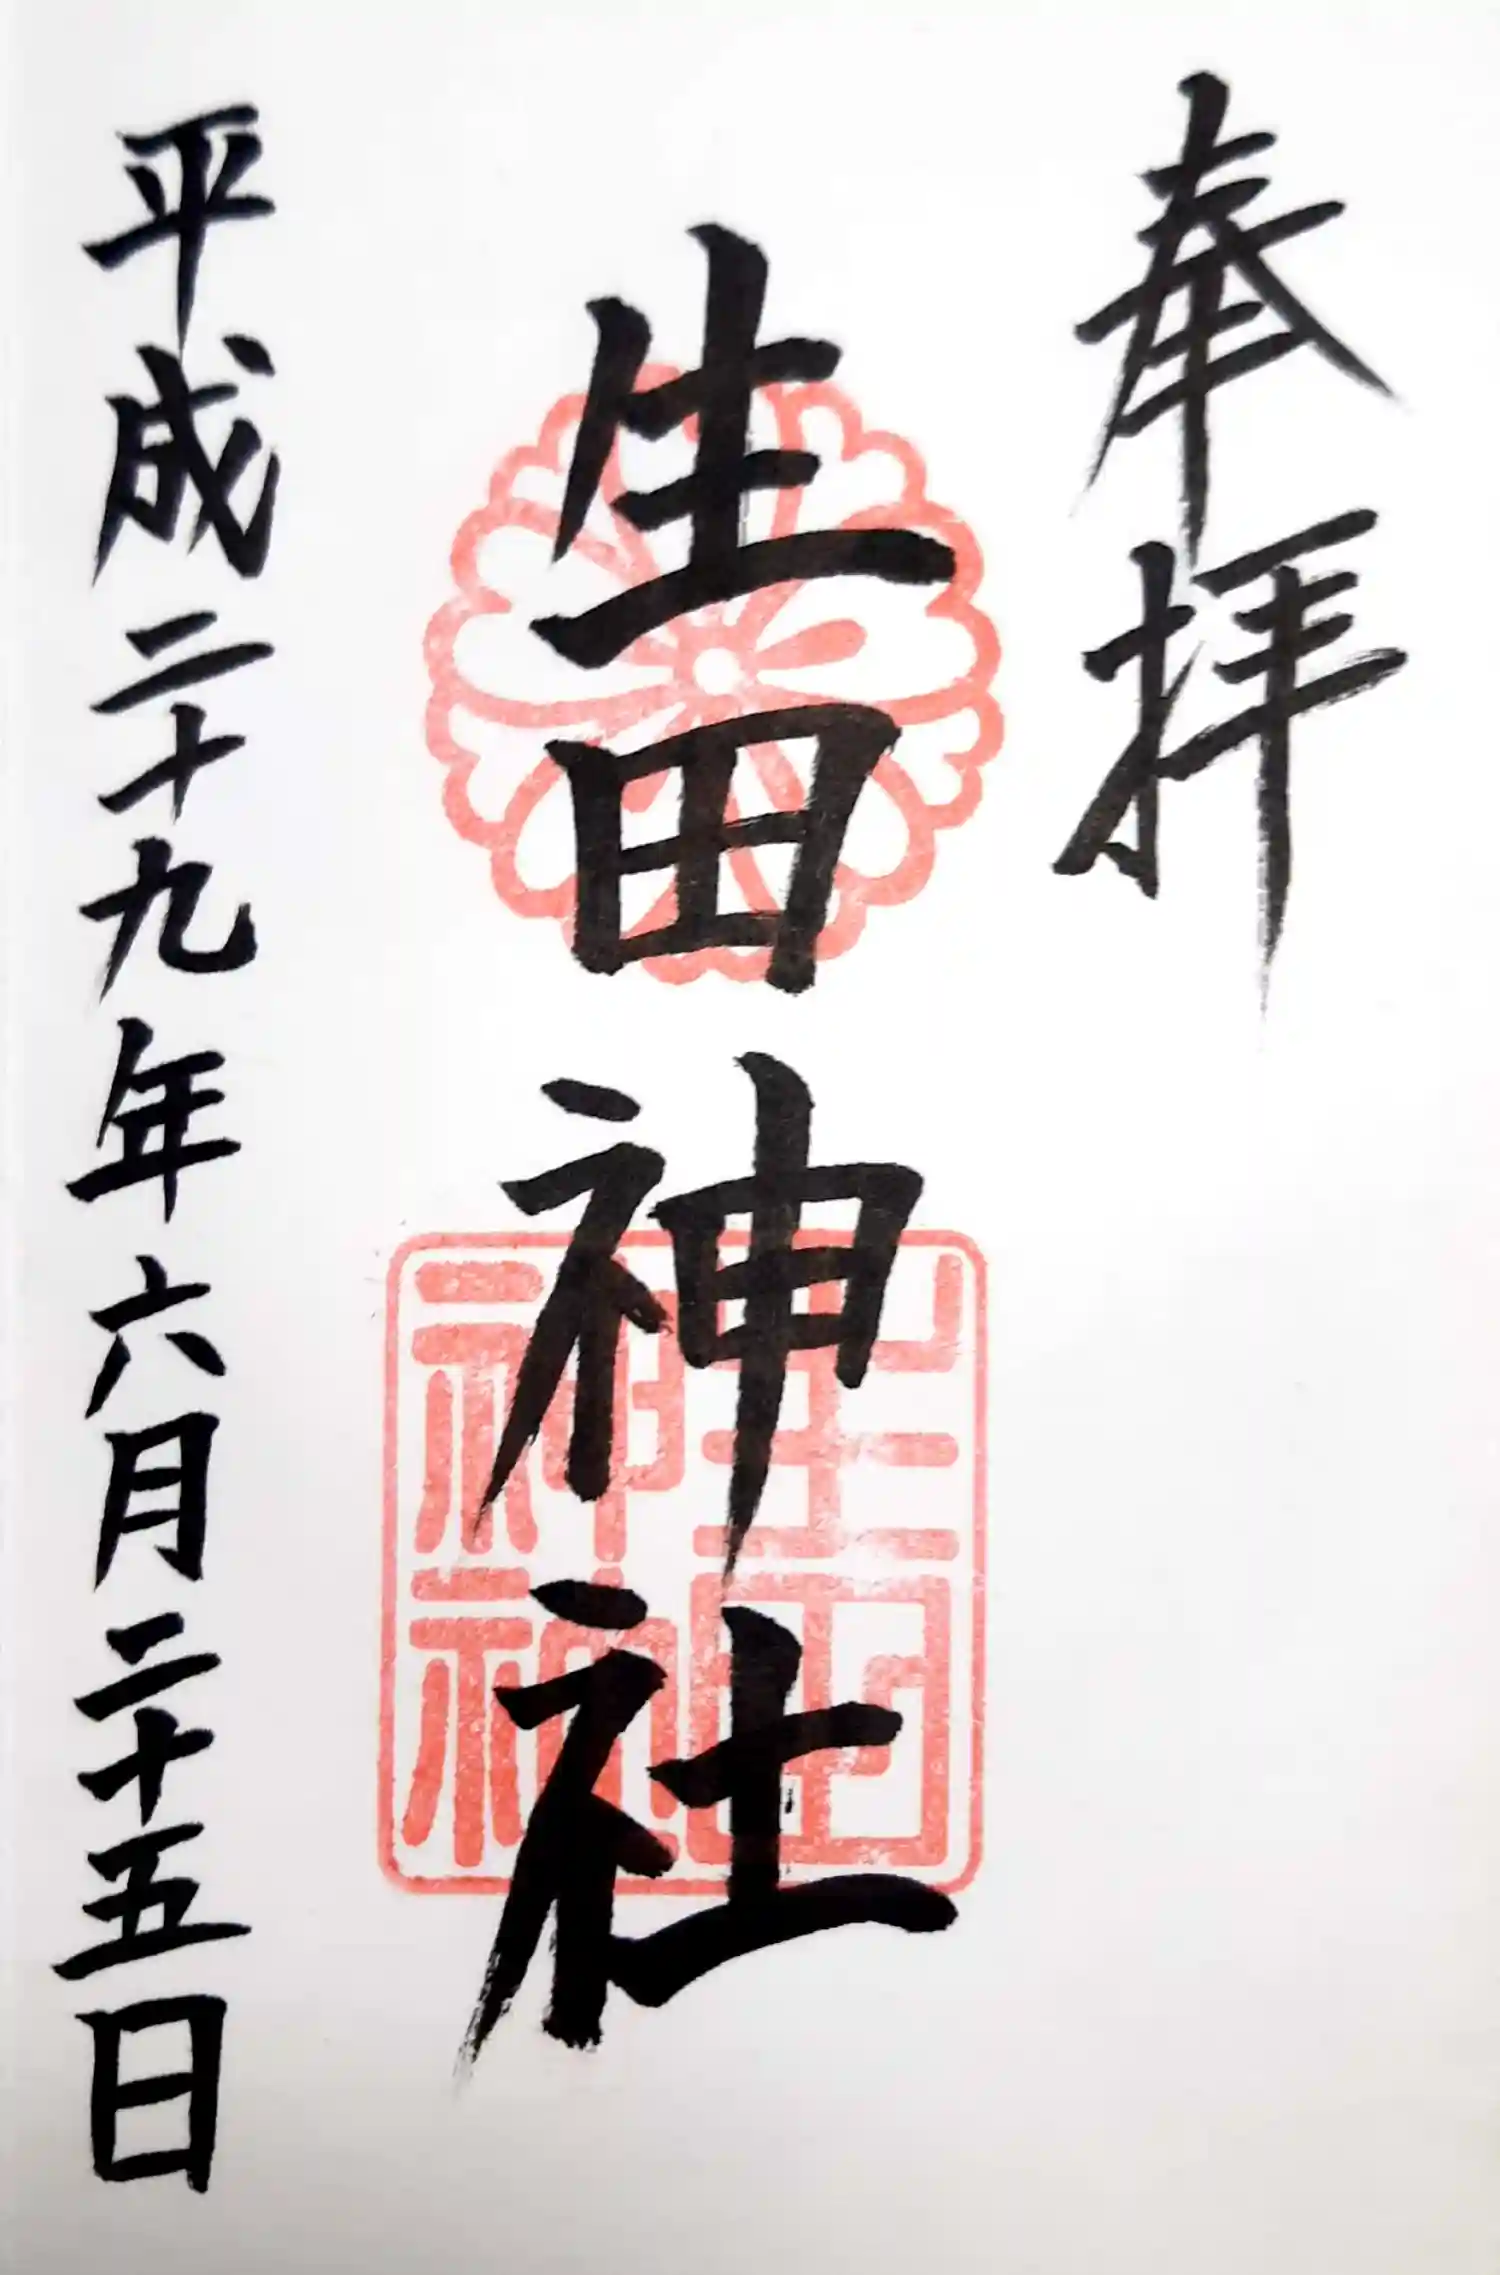 奉拝
生田神社
生田
神社
平成二十九年六月二十五日